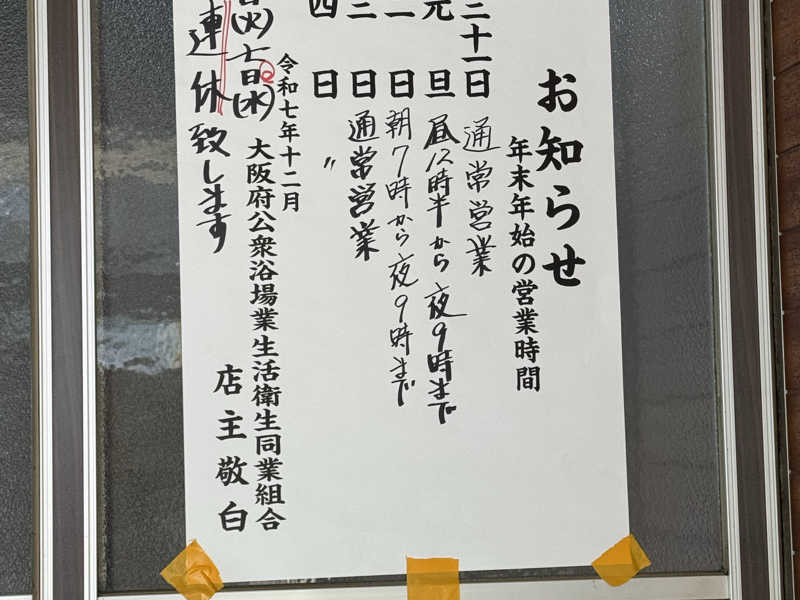 お知らせ
年末年始の営業時間
三十一日 通常営業
元旦 昼12時半から夜9時まで
二日 朝7時から夜9時まで
三日 通常営業
四日 〃
令和七年十二月
大阪府公衆浴場業生活衛生同業組合
店主敬白
日(火)七日(水)
連休致します